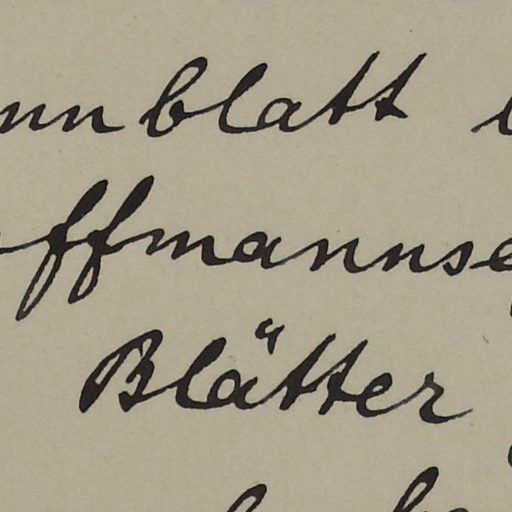 nnblatt
offmannse
Blätter